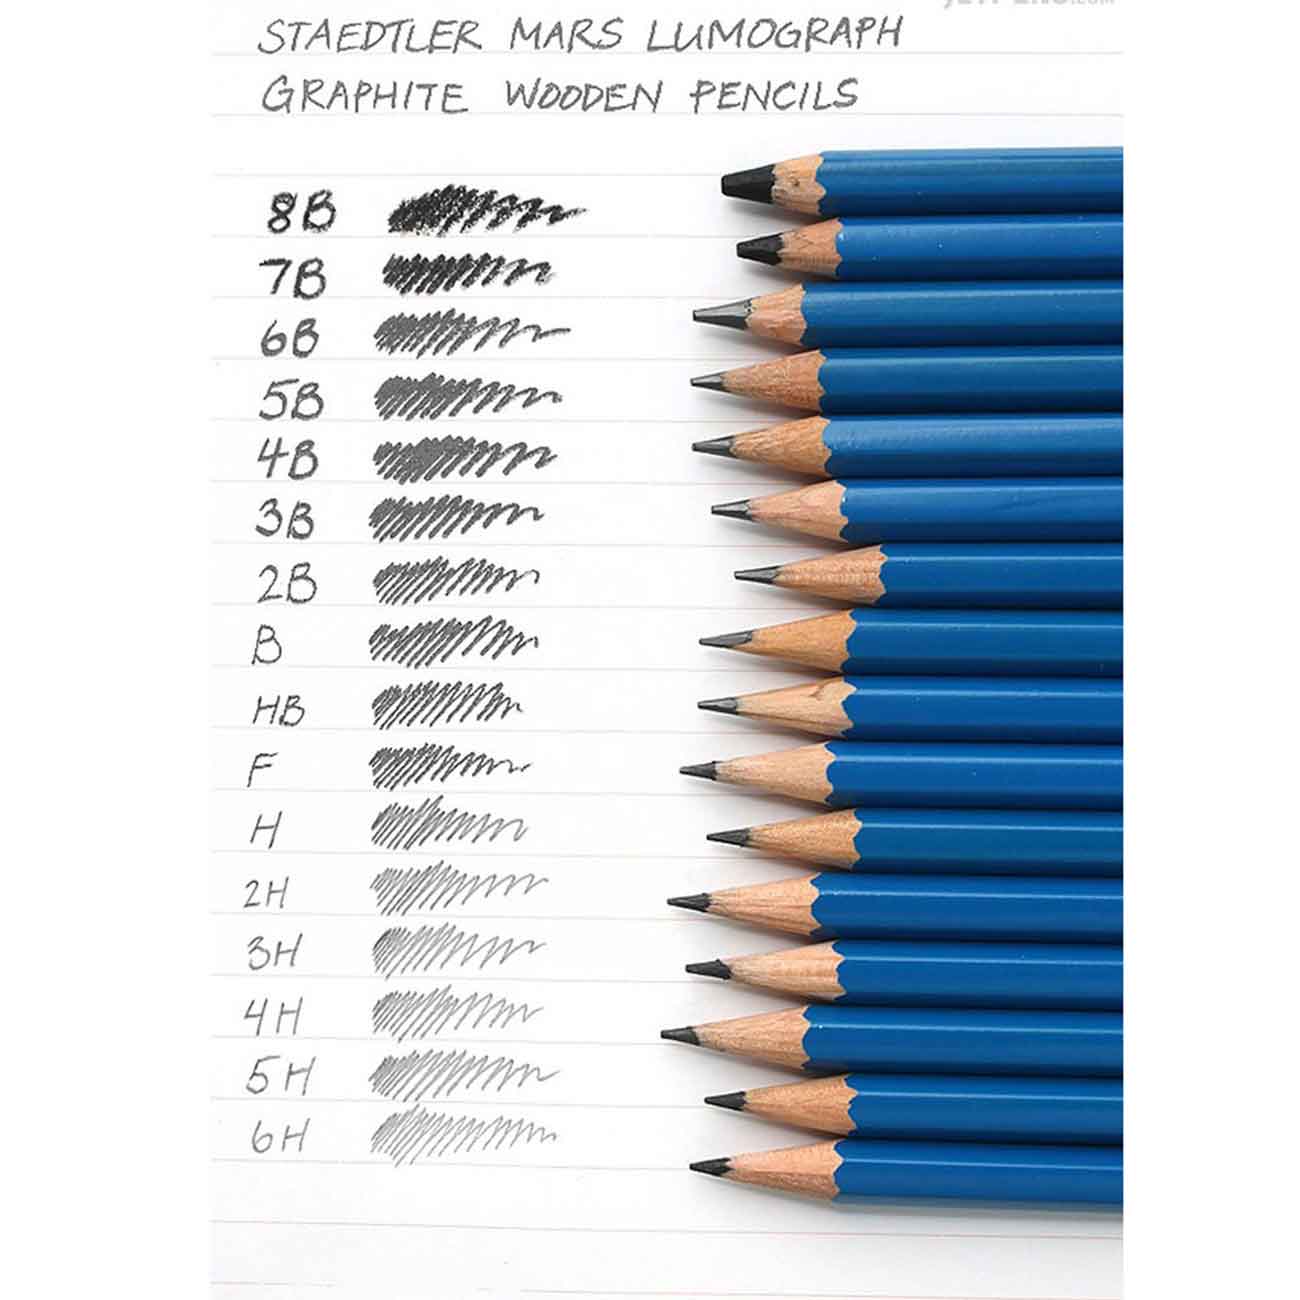 STAEDTLER MARS LUMOGRAPH
GRAPHITE WOODEN PENCILS
8B
7B
6B
5B
4B
3B
2B
B
HB
F
H
2H
3H
4H
5H
6H